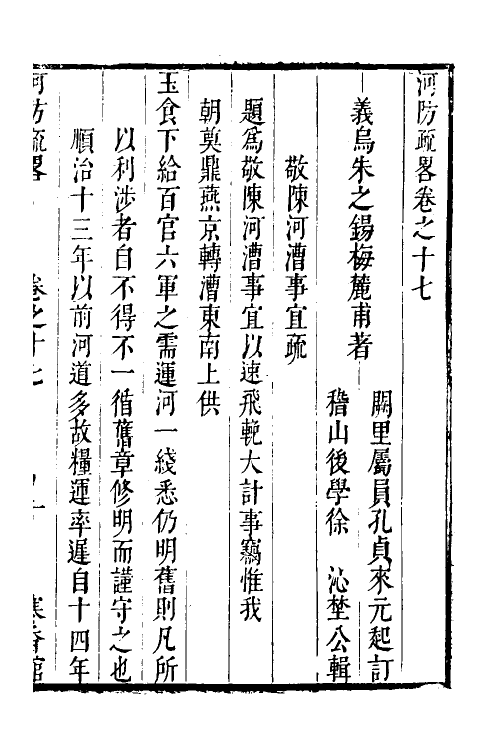 河防疏畧卷之十七
義烏朱之錫梅麓甫著
闕里屬員孔貞來元起訂
稽山後學徐　沁埜公輯
敬陳河漕事宜疏
題爲敬陳河漕事宜以速飛輓大計事竊惟我
朝奠鼎燕京轉漕東南上供
玉食下給百官六軍之需運河一綫悉仍明舊則凡所
以利涉者自不得不一循舊章修明而謹守之也
順治十三年以前河道多故糧運率遲自十四年
河防疏畧
卷之十七